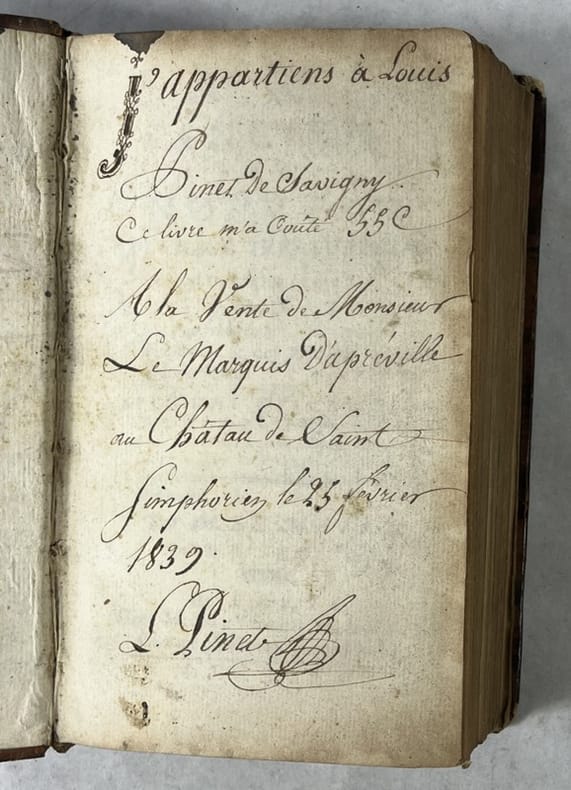 J'appartiens à Louis
Pinet De Savigny.
Ce livre m'a Couté 55C
A la Vente de Monsieur
Le Marquis D'apréville
au Châtau de Saint
Simphorien le 25 février
1839.
L. Pinet